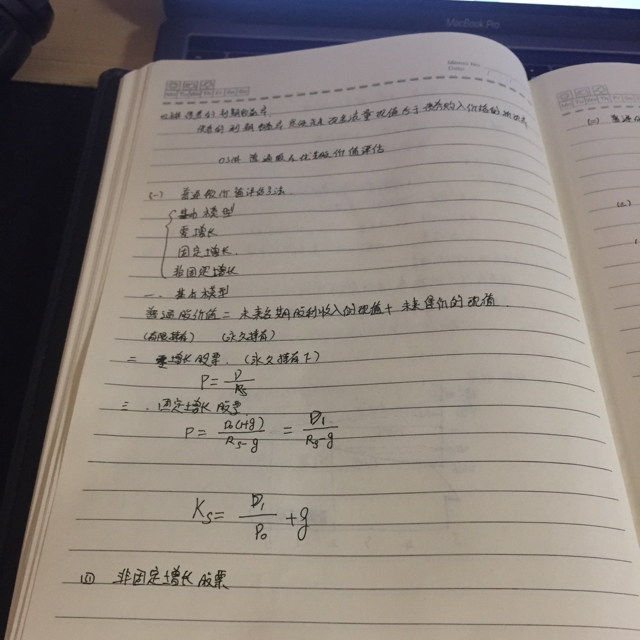 MacBook Pro
Memo No.
Date
债券的到期收益率
债券的到期收益率是使未来现金流量现值等于债券购入价格的折现率
普通股及优先股价值评估
(一) 普通股价值评估方法
基本模型
零增长
固定增长
非固定增长
一、基本模型
普通股价值 = 未来各期股利收入的现值 + 未来售价的现值
(有限持有) (永久持有)
二 零增长股票 (永久持有下)
P = D / Rs
三、固定增长股票
P = D₀(1+g) / Rs-g = D₁ / Rs-g
Ks = D₁ / P₀ + g
四 非固定增长股票
(一) 普通
(二)